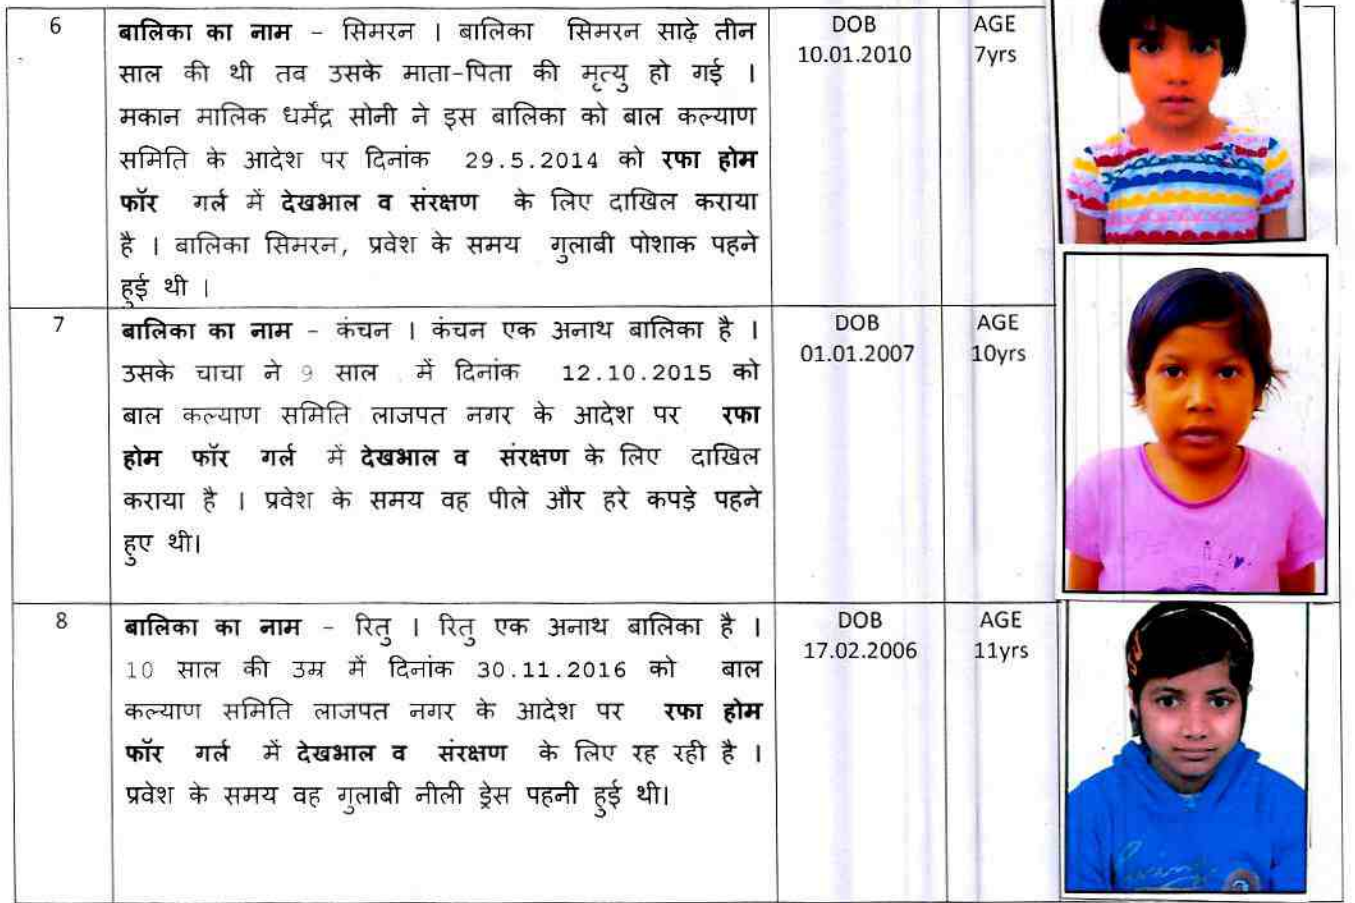 6
बालिका का नाम – सिमरन । बालिका सिमरन साढ़े तीन
साल की थी तव उसके माता-पिता की मृत्यु हो गई ।
मकान मालिक धर्मेंद्र सोनी ने इस बालिका को बाल कल्याण
समिति के आदेश पर दिनांक 29.5.2014 को रफा होम
फॉर गर्ल में देखभाल व संरक्षण के लिए दाखिल कराया
है । बालिका सिमरन, प्रवेश के समय गुलाबी पोशाक पहने
हुई थी ।
DOB
10.01.2010
AGE
7yrs
7
बालिका का नाम – कंचन । कंचन एक अनाथ बालिका है ।
उसके चाचा ने 9 साल में दिनांक 12.10.2015 को
बाल कल्याण समिति लाजपत नगर के आदेश पर रफा
होम फॉर गर्ल में देखभाल व संरक्षण के लिए दाखिल
कराया है । प्रवेश के समय वह पीले और हरे कपड़े पहने
हुए थी।
DOB
01.01.2007
AGE
10yrs
8
बालिका का नाम – रितु । रितु एक अनाथ बालिका है ।
10 साल की उम्र में दिनांक 30.11.2016 को बाल
कल्याण समिति लाजपत नगर के आदेश पर रफा होम
फॉर गर्ल में देखभाल व संरक्षण के लिए रह रही है ।
प्रवेश के समय वह गुलाबी नीली ड्रेस पहनी हुई थी।
DOB
17.02.2006
AGE
11yrs